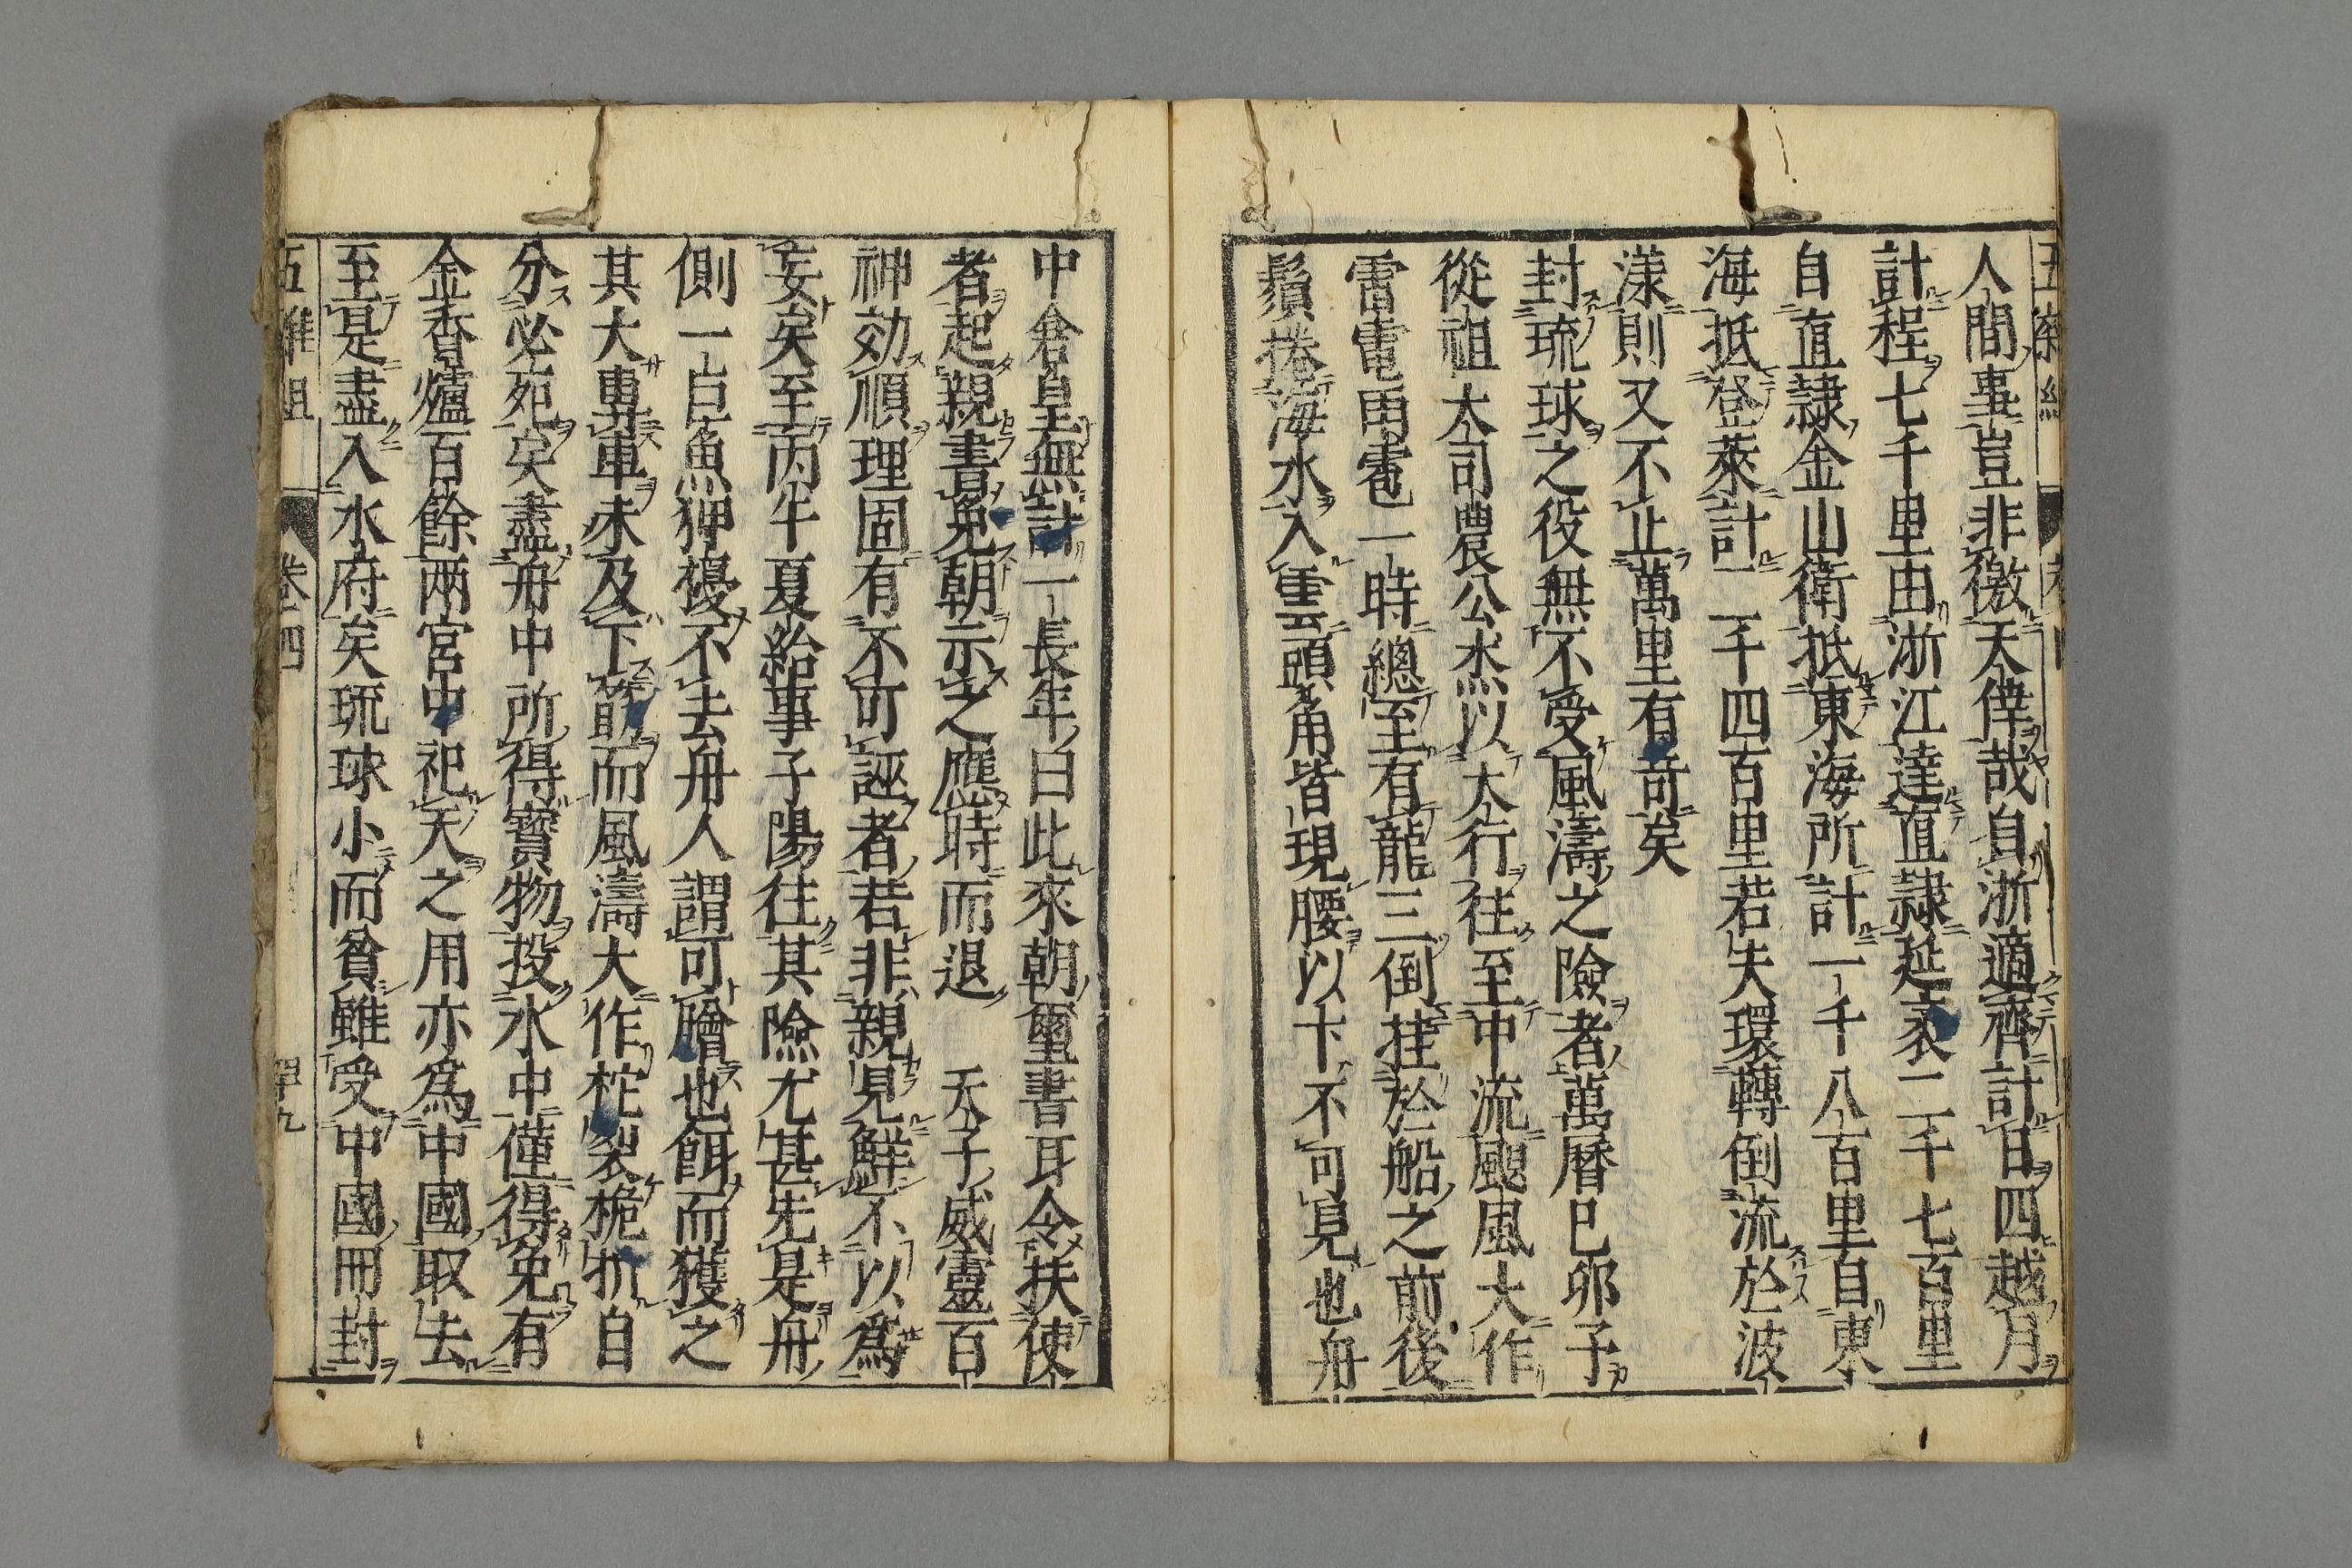 人間事豈非徼天倖哉自浙適齊計日四越月
計程七千里由浙江達直隷延袤二千七百里
自直隷金山衛抵東海所計一千八百里自東
海抵登萊計一千四百里若夫環轉倒流於波
漾則又不止萬里有竒矣
封琉球之役無不受風濤之險者萬曆巳卯予
從祖大司農公杰以大行往至中流颶風大作
雷電雨雹一時總至有龍三倒挂於船之前後
鬚捲海水入雲頭角皆現腰以下不可見也舟
中倉皇無計一長年曰此來朝璽書耳令扶使
者起親書免朝示之應時而退　天子威靈百
神効順理固有不可誣者若非親見鮮不以爲
妄矣至丙午夏給事子陽往其險尤甚先是舟
側一巨魚狎擾不去舟人謂可膾也餌而獲之
其大專車未及下筯而風濤大作柁裂桅折自
分必死矣盡舟中所得寳物投水中僅得免有
金香爐百餘兩宮中祀天之用亦爲中國取去
至是盡入水府矣琉球小而貧雖受中國冊封
五雜組
卷四
四十九